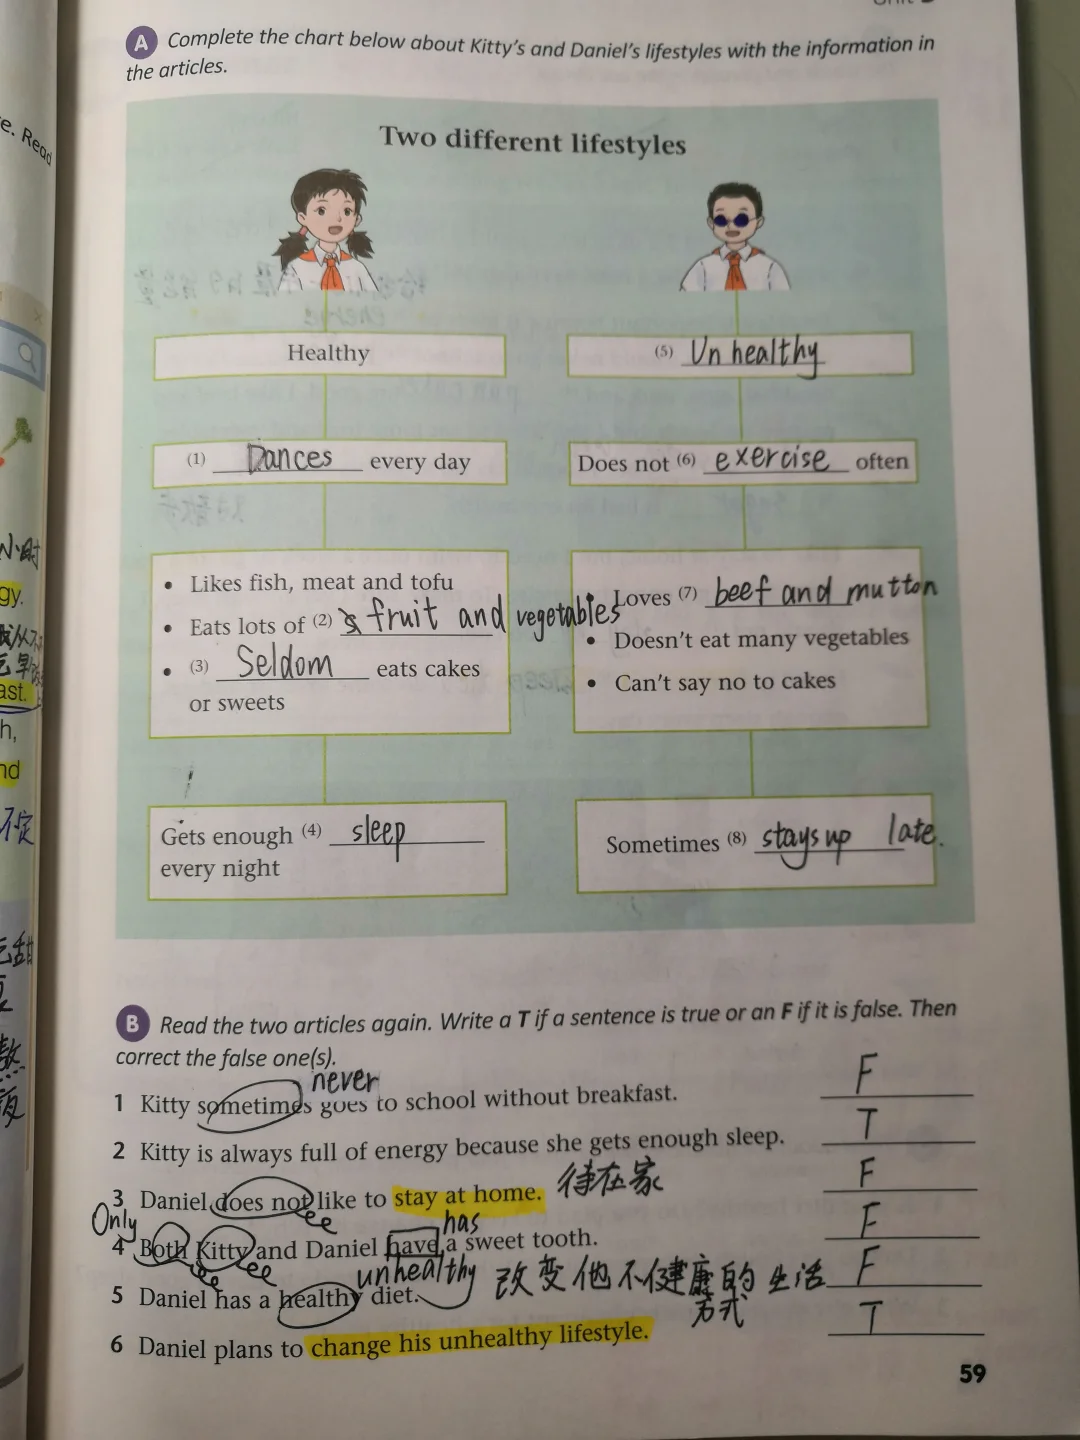 A Complete the chart below about Kitty's and Daniel's lifestyles with the information in
the articles.
e. Read
Two different lifestyles
Healthy
(5) Unhealthy
(1) Dances every day
Does not (6) exercise often
• Likes fish, meat and tofu
• Eats lots of (2) fruit and vegetables
• (3) Seldom eats cakes
or sweets
Loves (7) beef and mutton
• Doesn't eat many vegetables
• Can't say no to cakes
Gets enough (4) sleep
every night
Sometimes (8) stays up late.
小时
gy.
ast.
h,
nd
B Read the two articles again. Write a T if a sentence is true or an F if it is false. Then
correct the false one(s).
never
1 Kitty sometimes goes to school without breakfast. F
2 Kitty is always full of energy because she gets enough sleep. T
3 Daniel does not like to stay at home. 待在家 F
Only has
4 Both Kitty and Daniel have a sweet tooth. F
unhealthy 改变他不健康的生活
方式
5 Daniel has a healthy diet. F
6 Daniel plans to change his unhealthy lifestyle. T
59